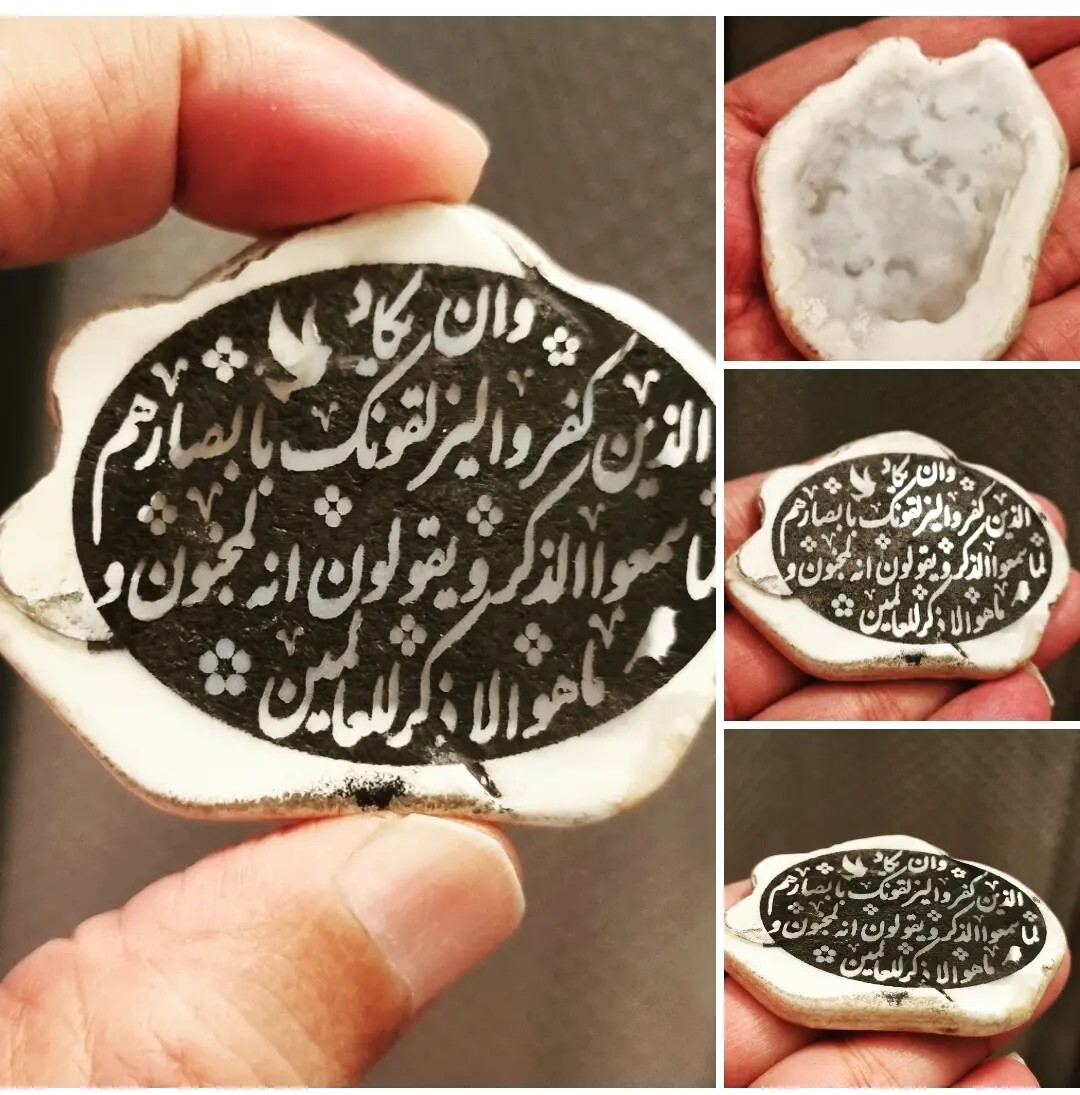 وان یکاد
الذین کفروا لیزلقونک بابصارهم
لما سمعوا الذکر و یقولون انه لمجنون و
ماهو الا ذکر للعالمین
وان یکاد
الذین کفروا لیزلقونک بابصارهم
لما سمعوا الذکر و یقولون انه لمجنون و
ماهو الا ذکر للعالمین
وان یکاد
الذین کفروا لیزلقونک بابصارهم
لما سمعوا الذکر و یقولون انه لمجنون و
ماهو الا ذکر للعالمین